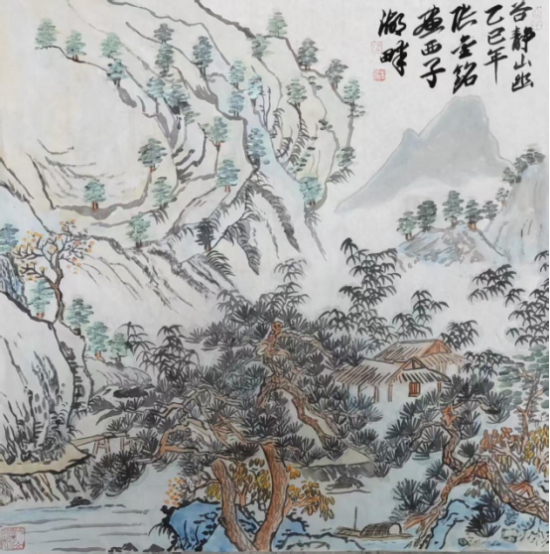 谷静山幽
乙巳年
张金铭
画西子
湖畔